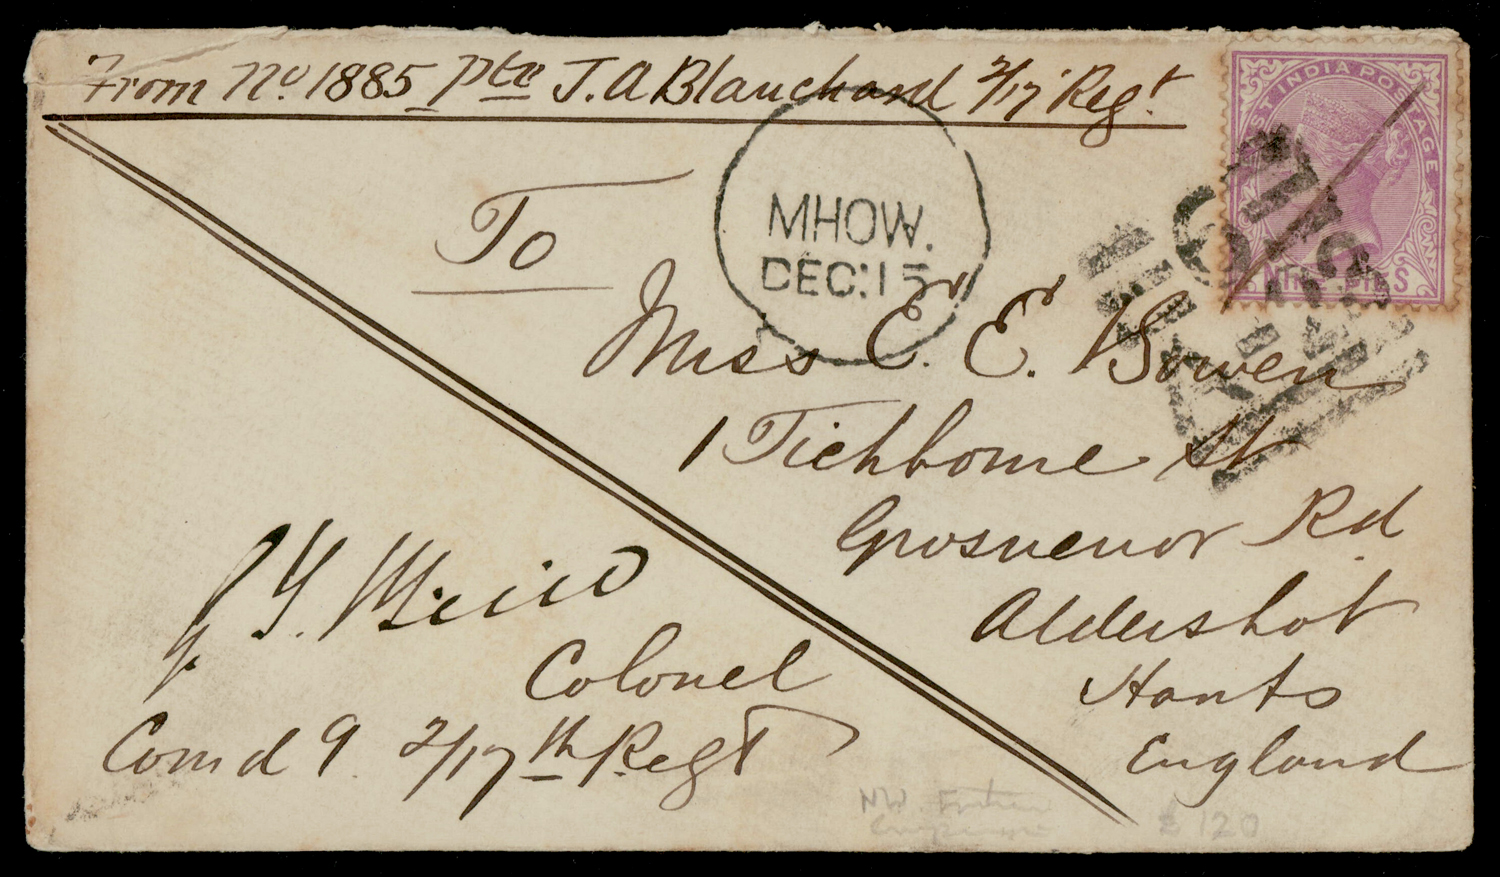 From No. 1885 Pte J. A Blanchard 2/17 Regt
EAST INDIA POSTAGE
NINE PIES
To
MHOW.
DEC:15
Miss E. E. Bowen
1 Tichborne St
Grosvenor Rd
Aldershot
Hants
England
Colonel
Comdg 2/17th Regt
N.W.
£120